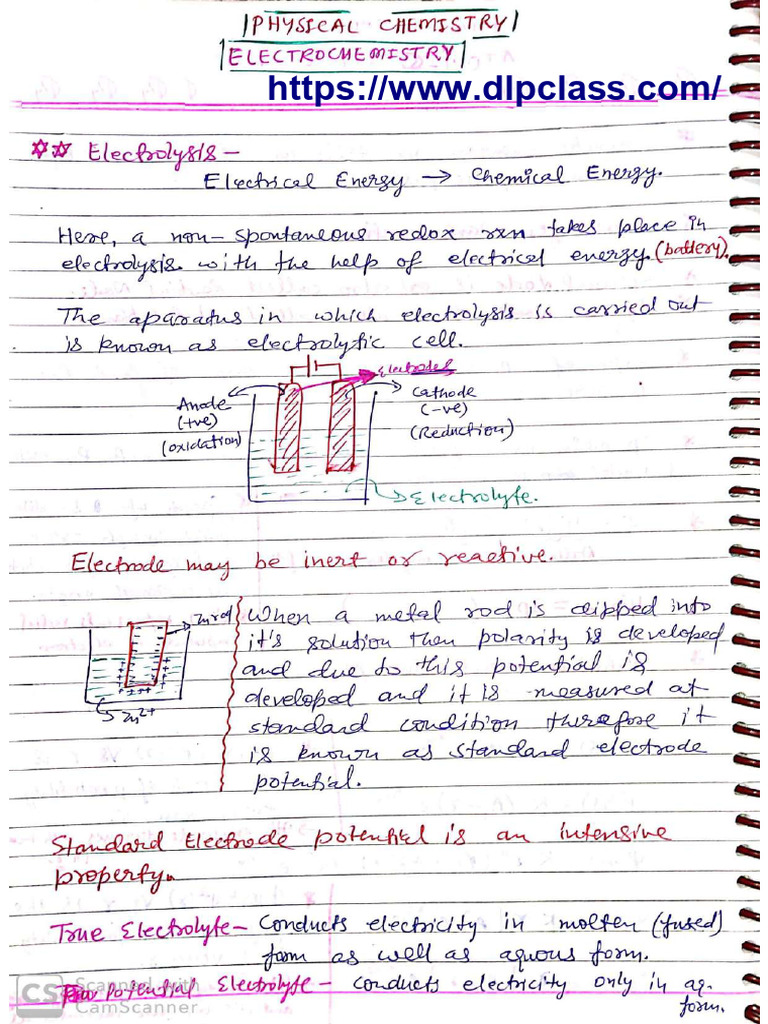 PHYSICAL CHEMISTRY
ELECTROCHEMISTRY
https://www.dlpclass.com/
Electrolysis -
Electrical Energy → Chemical Energy.
Here, a non-spontaneous redox rxn takes place in
electrolysis with the help of electrical energy. (battery).
The aparatus in which electrolysis is carried out
is known as electrolytic cell.
Electrodes
Anode
(+ve)
(oxidation)
Cathode
(-ve)
(Reduction)
Electrolyte.
Electrode may be inert or reactive.
Zn rod
Zn2+
When a metal rod is dipped into
it's solution then polarity is developed
and due to this potential is
developed and it is measured at
standard condition therefore it
is known as standard electrode
potential.
Standard Electrode potential is an intensive
property.
True Electrolyte - Conducts electricity in molten (fused)
form as well as aquous form.
Potential Electrolyte - conducts electricity only in aq.
form.
CS Scanned with
CamScanner